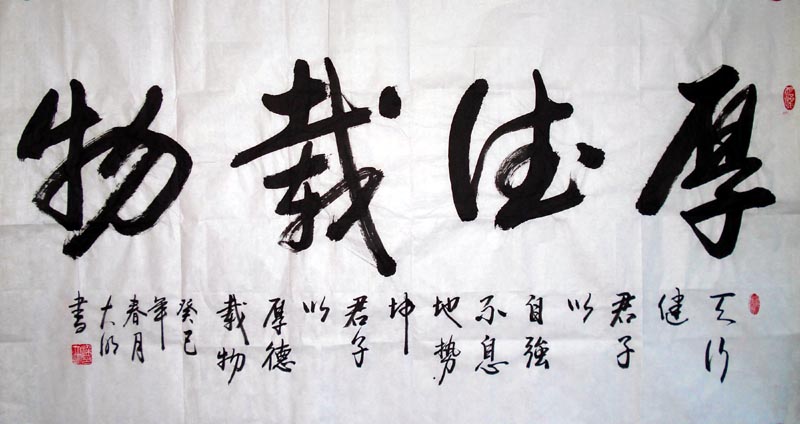 厚德載物
天行
健
君子
以
自強
不息
地勢
坤
君子
以
厚德
載物
癸巳
年
春月
大
書